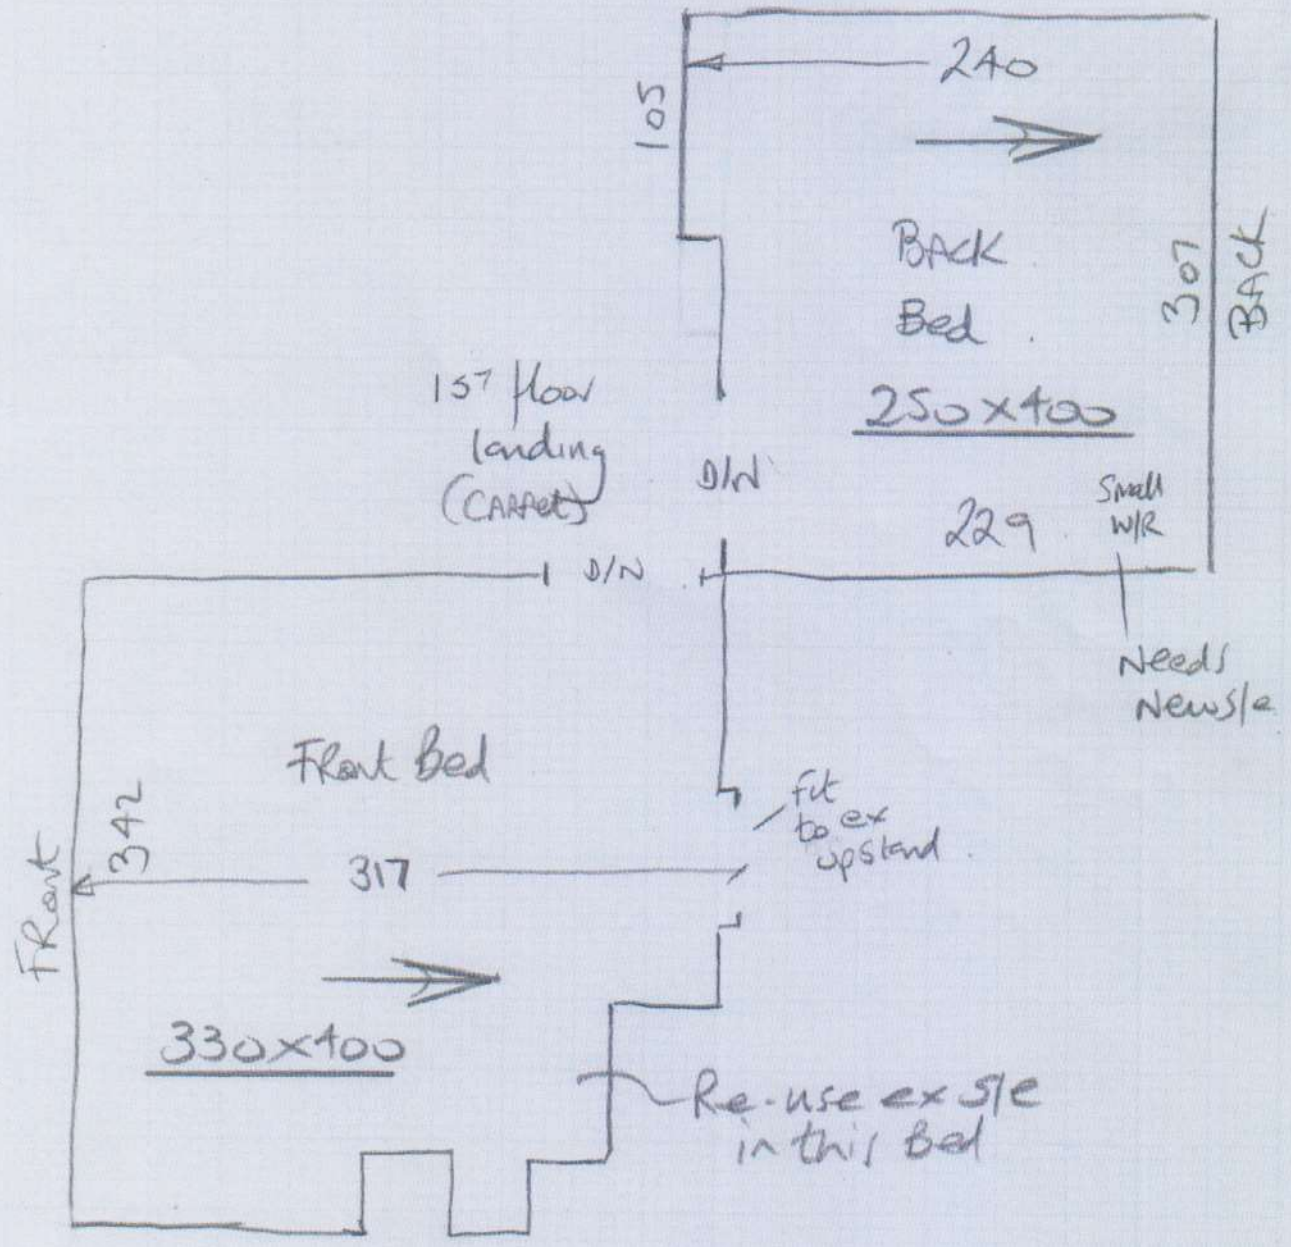 240
105
BACK
Bed
307
BACK
250x400
1st floor
landing
(CARPet)
D/N
229
Small
W/R
D/N
Needs
New s/e
Front Bed
Fit
to ex
upstand
342
317
FRont
330x400
Re-use ex s/e
in this Bed